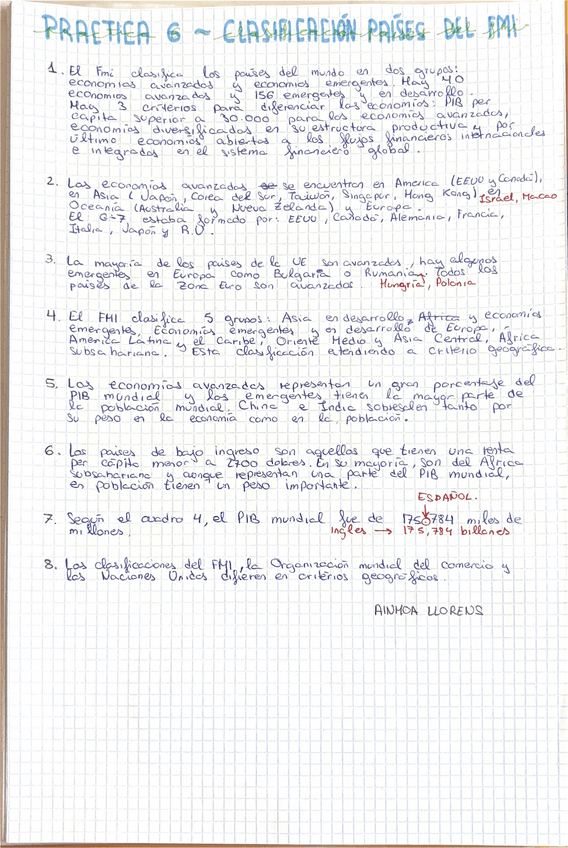 PRACTICA 6 ~ CLASIFICACIÓN PAÍSES DEL FMI
1. El Fmi clasifica los países del mundo en dos grupos:
economías avanzadas y economías emergentes. Hay 40
economías avanzadas y 156 emergentes y en desarrollo.
Hay 3 criterios para diferenciar las economías: PIB per
capita superior a 30.000 para las economías avanzadas,
economías diversificadas en su estructura productiva y por
último economías abiertas a los flujos financieros internacionales
e integradas en el sistema financiero global.
2. Las economías avanzadas se se encuentran en America (EEUU y Canadá),
en Asia (Japón, Corea del Sur, Taiwán, Singapur, Hong Kong) en Israel, Macao
Oceanía (Australia y Nueva Zelanda) y Europa.
El G-7, estaba formado por: EEUU, Canadá, Alemania, Francia,
Italia, Japón y R.U.
3. La mayoría de los países de la UE son avanzados, hay algunos
emergentes en Europa como Bulgaria o Rumanía. Todos los
países de la Zona Euro son avanzados. Hungría, Polonia
4. El FMI clasifica 5 grupos: Asia en desarrollo, Africa y economías
emergentes, Economías emergentes y en desarrollo de Europa,
América Latina y el Caribe, Oriente Medio y Asia Central, África
subsahariana. Esta clasificación atendiendo a criterio geográfico.
5. Las economías avanzadas representan un gran porcentaje del
PIB mundial y las emergentes tienen la mayor parte de
la población mundial. China e India sobresalen tanto por
su peso en la economía como en la población.
6. Los países de bajo ingreso son aquellos que tienen una renta
per cápita menor a 2700 dolares. En su mayoría, son del África
subsahariana y aunque representan una parte del PIB mundial,
en población tienen un peso importante.
ESPAÑOL.
7. Según el cuadro 4, el PIB mundial fue de 175.784 miles de
millones. inglés → 175,784 billones
8. Las clasificaciones del FMI, la Organización mundial del comercio y
las Naciones Unidas difieren en critérios geográficos.
AINHOA LLORENS